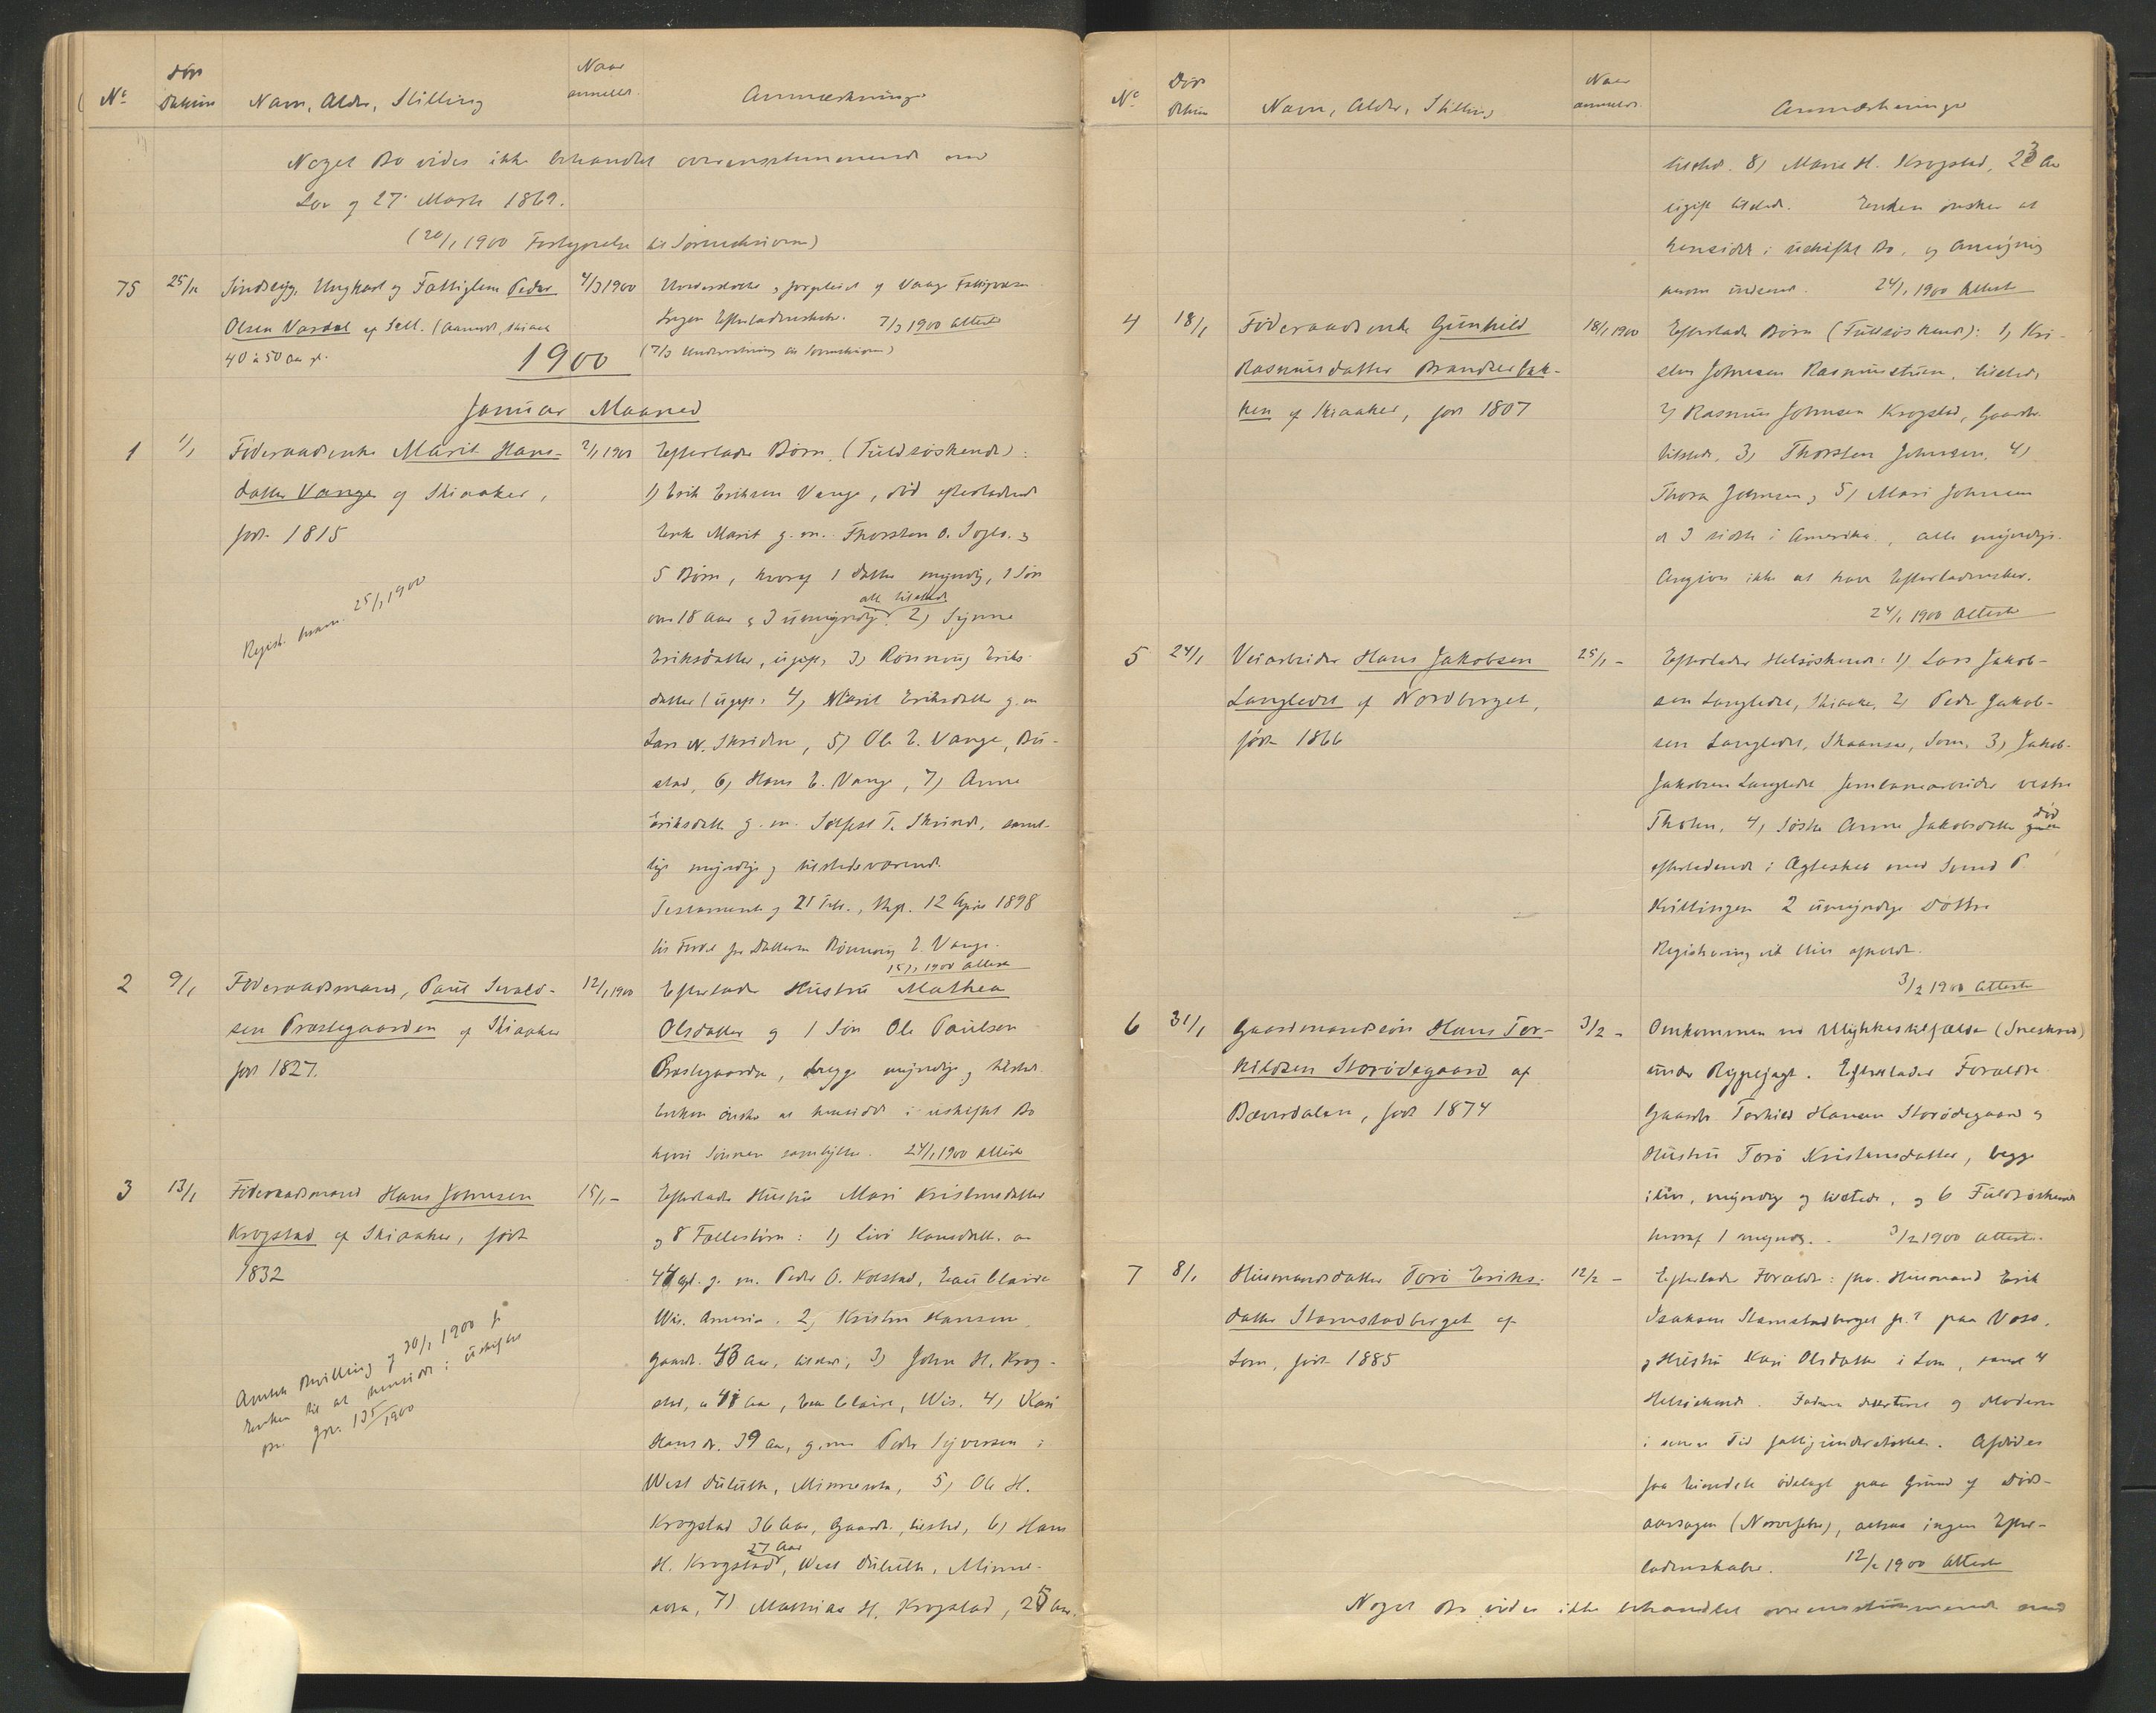 No
Døds
Datum
Navn, Alder, Stilling
Naar
anmeldt.
Anmærkninger
Noget Bo vides ikke behandlet overensstemmende med
Lov af 27. Marts 1869.
(20/1 1900 Fortegnelse til Sorenskriveren)
75
25/12
Sindssyg, Ungkarl og Fattiglem Peder
Olsen Vardal af Sell. (Aanord, Skiaak
40 à 50 Aar gl.
7/3 1900
Understøttet og forpleiet af Vaage Fattigvæsen
Ingen Efterladenskaber. 7/3 1900 Attest
(7/3 Underretning til Sorenskriveren)
1900
Januar Maaned
1
1/1
Føderaadsenke Marit Hans-
datter Vange af Skiaaker,
født 1815
Regist. frem. 25/1 1900
2/1 1900
Efterlader Børn (Fuldsøskende):
1) Erik Eriksen Vange, død efterladende
Enke Marit g. m. Thorsten O. og
5 Børn, hvoraf 1 Datter myndig, 1 Søn
alle tilstede
over 18 Aar og 3 umyndige. 2) Synne
Eriksdatter, ugift, 3) Rønnoug Eriks-
datter (ugift, 4) Marit Eriksdatter g. m.
Lars N. Skriden, 5) Ole E. Vange, Bu-
stad, 6) Hans E. Vange, 7) Anne
Eriksdatter g. m. Sølfest T. Skrinde, samt-
lige myndige og tilstedeværende.
Testamente af 21 Febr., 12 April 1898
til Fordel for Datteren Rønnoug E. Vange.
15/1 1900 Attest
2
9/1
Føderaadsmand, Paul Svends-
sen Præstegaarden af Skiaaker
født 1827.
12/1 1900
Efterlader Hustru Mathea
Olsdatter og 1 Søn Ole Paulsen
Præstegaarden, begge myndige og tilstede.
Enken ønsker at hensidde i uskiftet Bo
hvori Sønnen samtykker. 24/1 1900 Attest
3
13/1
Føderaadsmand Hans Johnsen
Krogstad af Skiaaker, født
1832
Amtets Bevilling af 30/1 1900 for
Enken til at hensidde i uskiftet
Bo. Jnr. 135/1900
15/1 -
Efterlader Hustru Mari Kristensdatter
og 8 Fællesbørn: 1) Livi Hansdatt.
44 g. m. Peder O. Kolstad, Eau Claire
Wis. Amerika. 2) Kristen Hansen
Gaardb. 43 Aar, tilstede, 3) John H. Krog-
stad, 41 Aar, Eau Claire, Wis. 4) Kari
Hansdr. 39 Aar, g. m. Peder Syversen i
West Duluth, Minnesota, 5) Ole H.
Krogstad 36 Aar, Gaardb., tilsted, 6) Hans
27 Aar
H. Krogstad, West Duluth, Minne-
sota, 7) Mathias H. Krogstad, 25 Aar.
No
Døds
Datum
Navn, Alder, Stilling
Naar
anmeldt.
Anmærkninger
tilsted. 8) Marie H. Krogstad, 23 Aar
ugift tilstede. Enken ønsker at
hensidde i uskiftet Bo, og Ansøgning
herom indsendt. 24/1 1900 Attest
4
18/1
Føderaadsenke Gunhild
Rasmusdatter Brandserbak-
ken af Skiaaker, født 1807
18/1 1900
Efterlader Børn (Fuldsøskende): 1) Kri-
sten Johnsen Rasmusstuen, tilstede,
2) Rasmus Johnsen Krogstad, Gaardbr.
tilstede, 3) Thorsten Johnsen, 4)
Thora Johnsen, 5) Mari Johnsen
de 3 sidste i Amerika, alle myndige.
Angives ikke at have Efterladensskaber.
24/1 1900 Attest
5
24/1
Veiarbeider Hans Jakobsen
Langledet af Nordberget,
født 1866
25/1 -
Efterlader Helsøskende: 1) Lars Jakob-
sen Langledet, Skiaaker, 2) Peder Jakob-
sen Langledet, Skaansar, Lom, 3) Jakob
Jakobsen Langledet Jernbanearbeider vestre
Thoten, 4) Søster Anne Jakobsdatter død
efterladende i Ægteskab med Svend P.
Kvitingen 2 umyndige Døttre
Registrering vil blive afholdt.
3/2 1900 Attest
6
31/1
Gaardmandssøn Hans Tor-
kildsen Storødegaard af
Bæverdalen, født 1874
3/2 -
Omkommen ved Ulykkestilfælde (Sneskred)
under Rypejagt. Efterlader Forældre
Gaardb. Torkild Hansen Storødegaard og
Hustru Torø Kristensdatter, begge
ilive, myndige og tilstede, og 6 Fuldsøskende
hvoraf 1 myndig. 3/2 1900 Attest.
7
8/1
Husmandsdatter Torø Eriks-
datter Stamstadberget af
Lom, født 1885
12/2 -
Efterlader Forældre: fhv. Husmand Erik
Isaksen Stamstadberget p. t. paa Voss,
og Hustru Kari Olsdatter i Lom, samt 4
Helsøskende. Faderen deserteret og Moderen
i senere Tid fattigunderstøttet. Afdødes
faa Eiendele ødelagt paa Grund af Døds-
aarsagen (Nervefeber), altsaa ingen Efter-
ladenskaber. 12/2 1900 Attest
Noget Bo vides ikke behandlet overensstemmende med